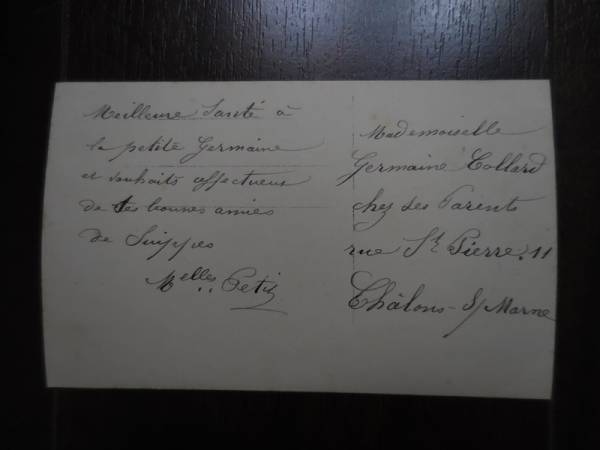 Meilleure Santé à
la petite Germaine
et souhaits affectueux
de tes bonnes amies
de Suippes
Melles Petit
Mademoiselle
Germaine Collard
chez ses Parents
rue St Pierre. 11
Châlons-S/Marne